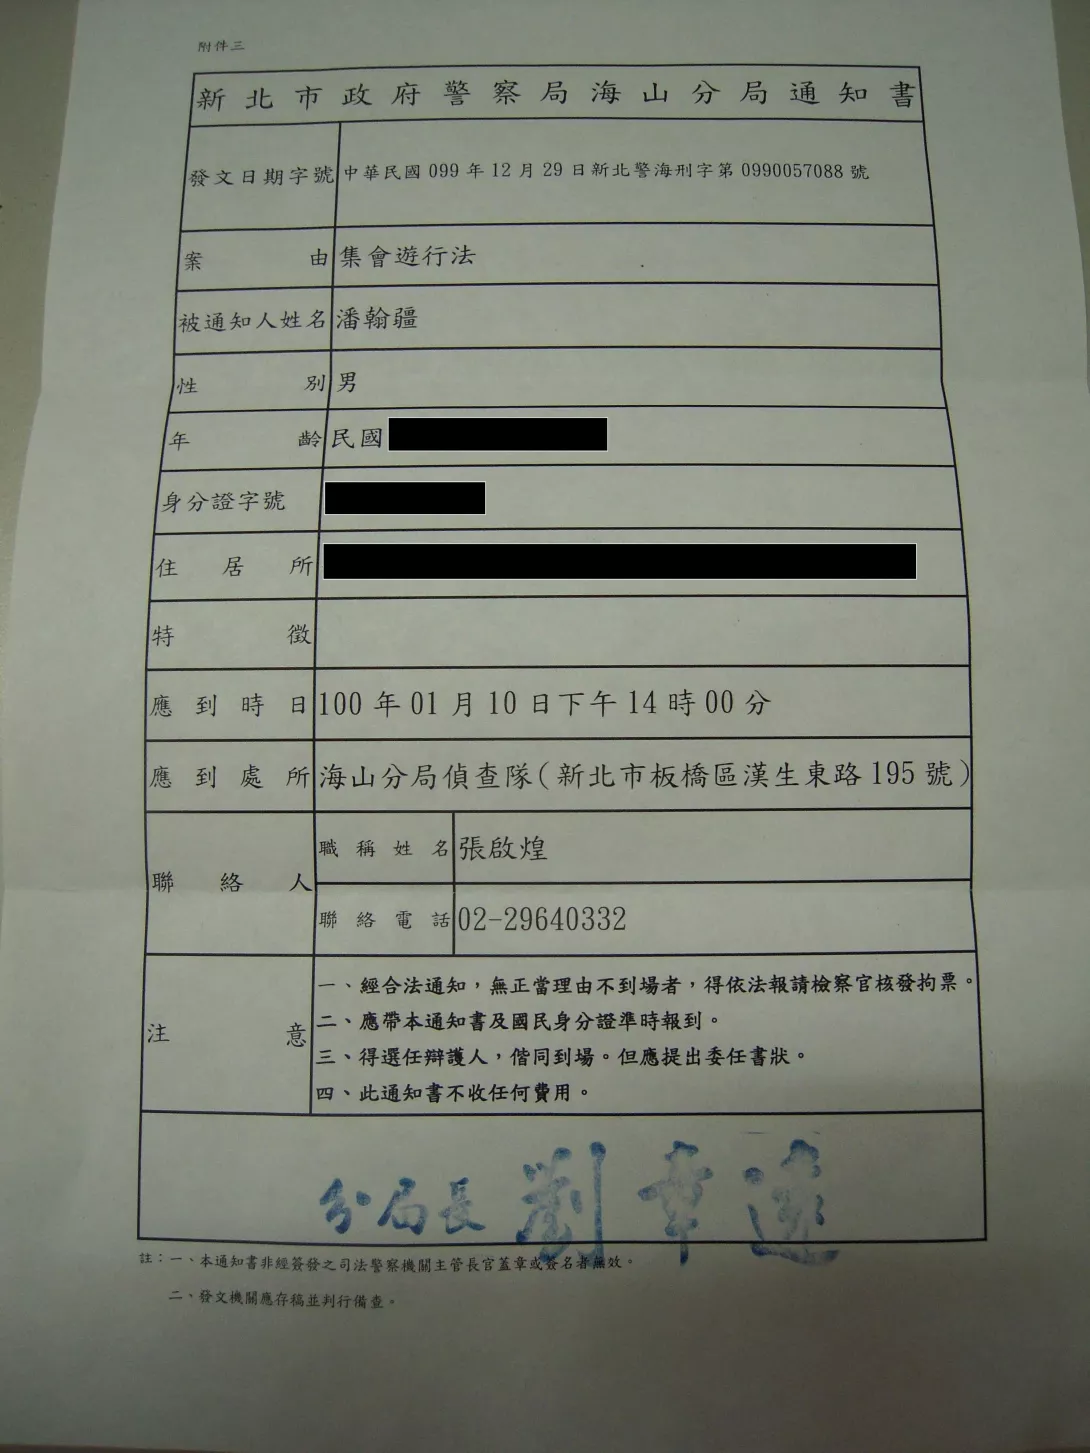 附件三
新北市政府警察局海山分局通知書
發文日期字號 中華民國 099 年 12 月 29 日新北警海刑字第 0990057088 號
案由 集會遊行法
被通知人姓名 潘翰疆
性別 男
年齡 民國
身分證字號
住居所
特徵
應到時日 100 年 01 月 10 日下午 14 時 00 分
應到處所 海山分局偵查隊(新北市板橋區漢生東路 195 號)
聯絡人 職稱姓名 張啟煌
聯絡電話 02-29640332
注意
一、經合法通知,無正當理由不到場者,得依法報請檢察官核發拘票。
二、應帶本通知書及國民身分證準時報到。
三、得選任辯護人,偕同到場。但應提出委任書狀。
四、此通知書不收任何費用。
分局長 劉章遠
註:一、本通知書非經簽發之司法警察機關主管長官蓋章或簽名者無效。
二、發文機關應存稿並判行備查。